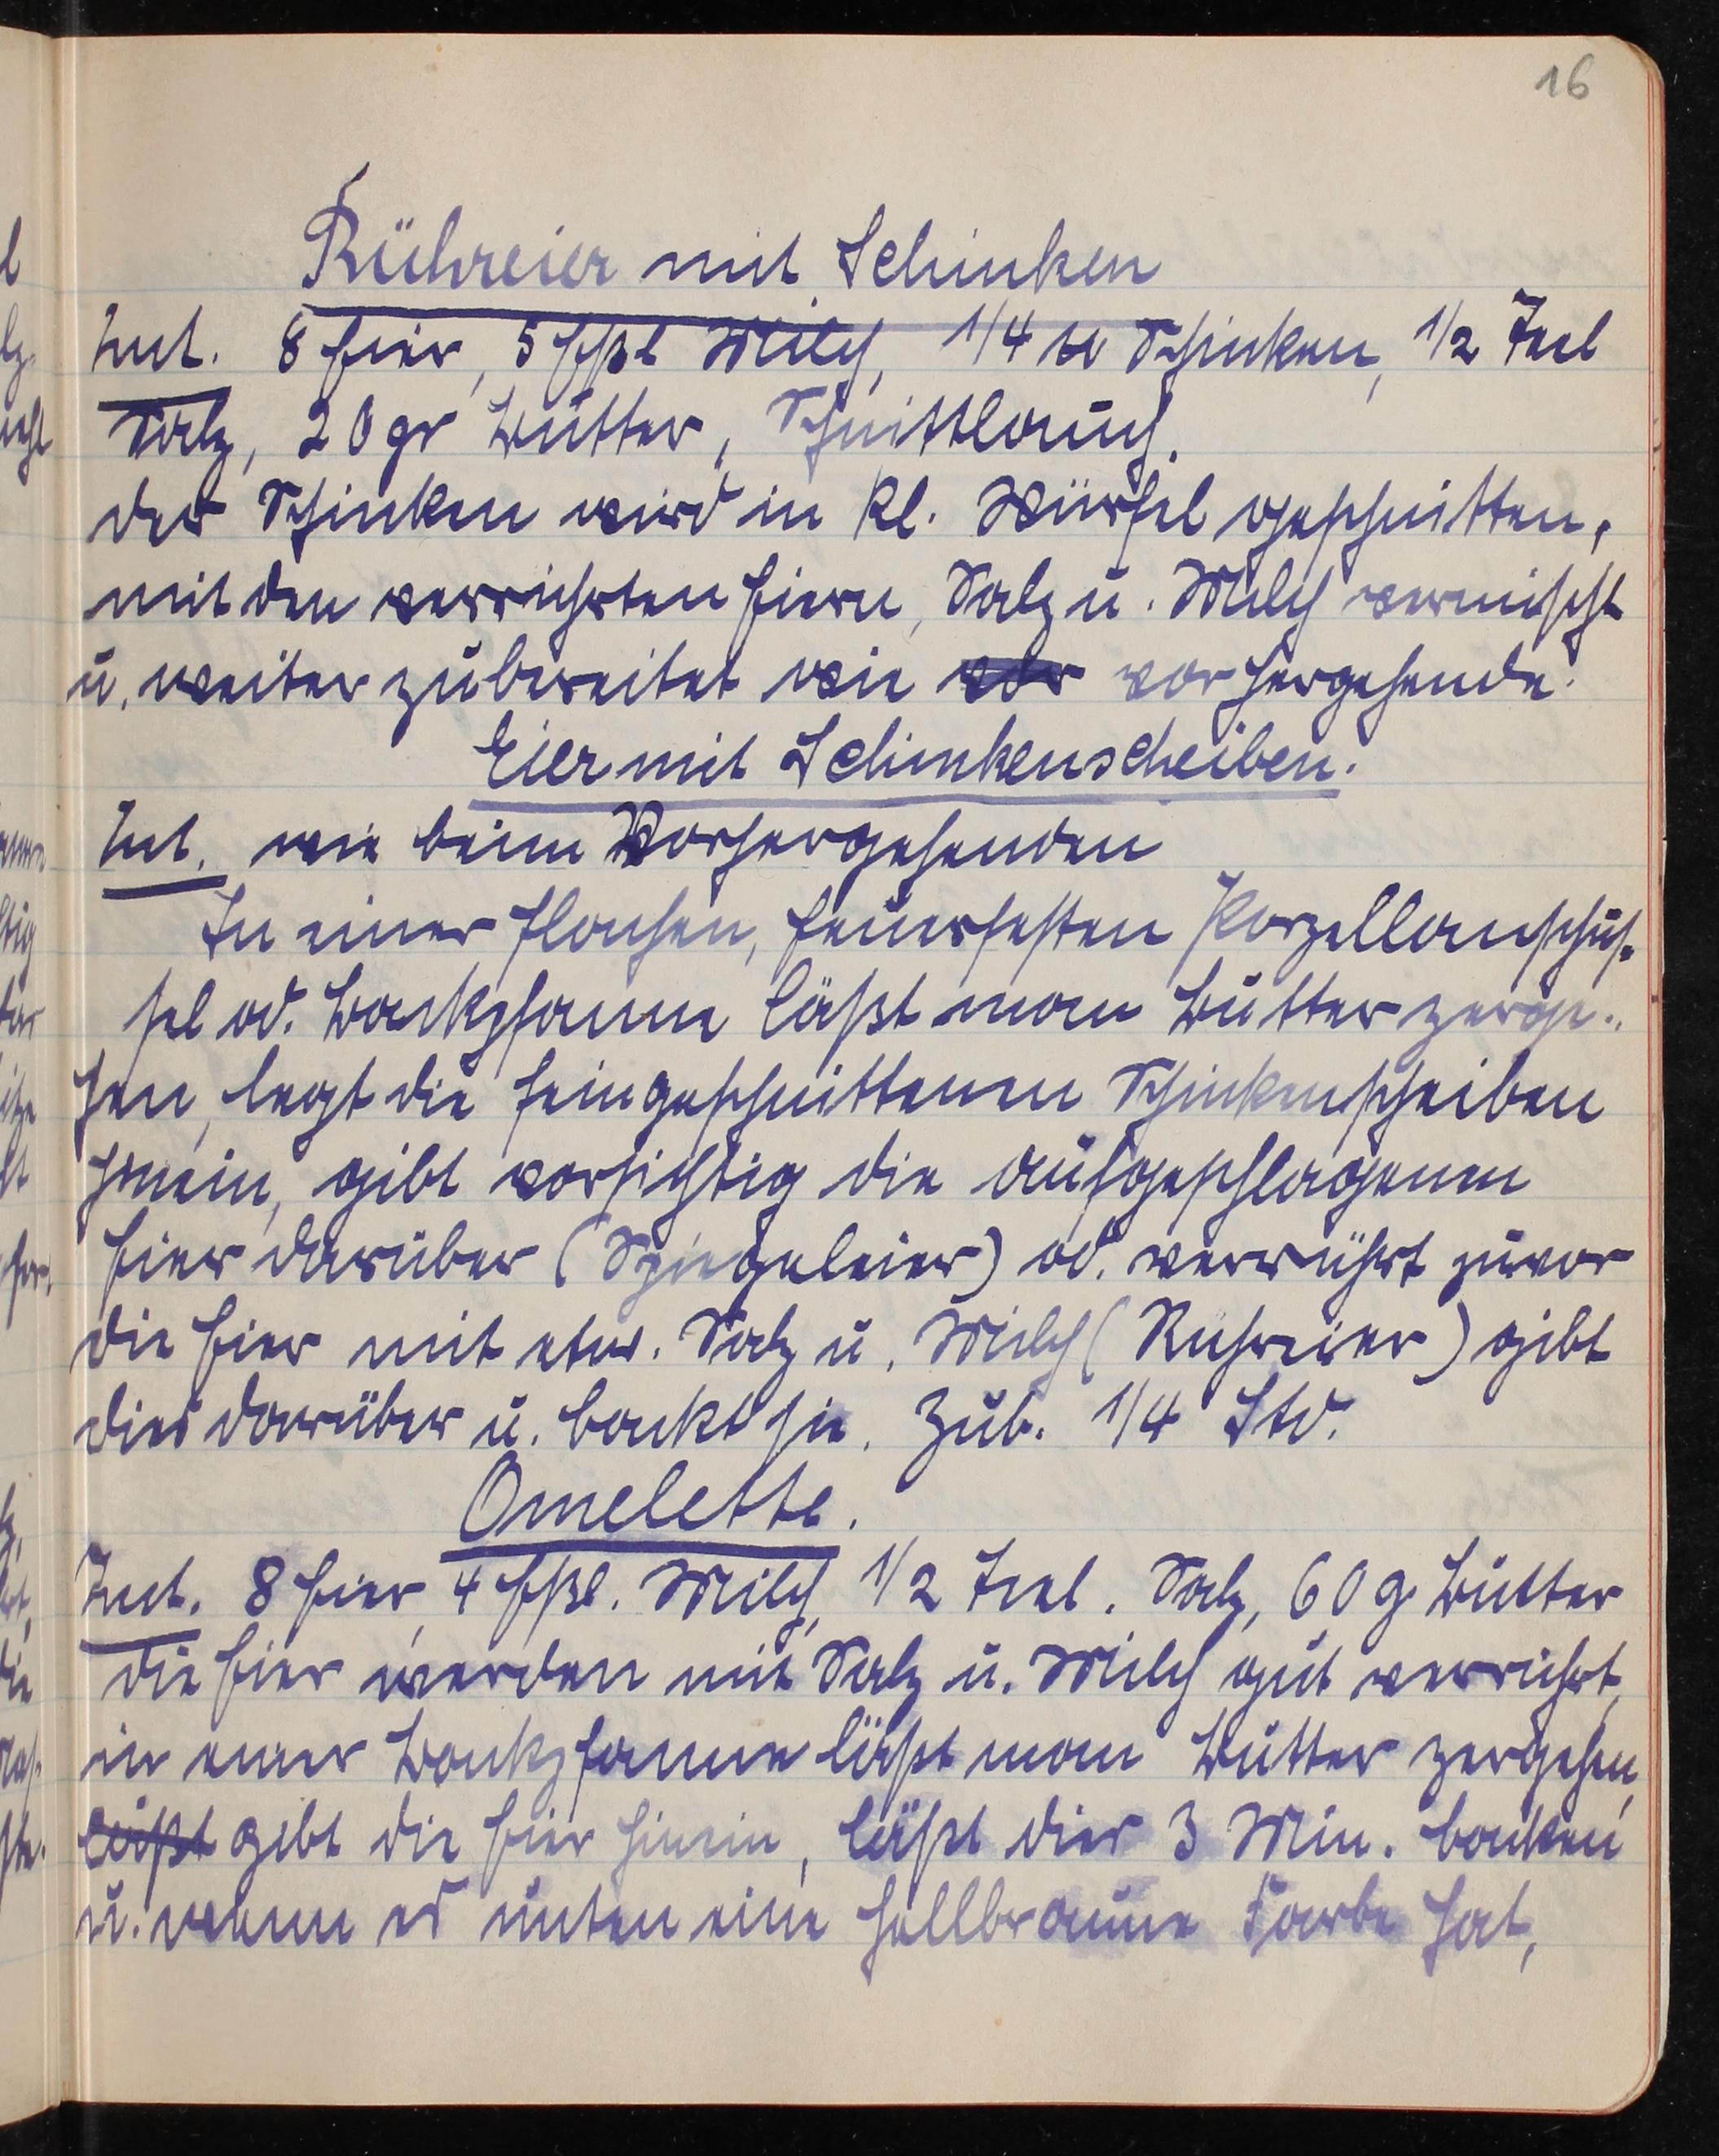 16
Rühreier mit Schinken
Zut. 8 Eier, 5 Eßl Milch, 1/4 ℔ Schinken, 1/2 Teel
Salz, 20 gr Butter, Schnittlauch.
der Schinken wird in kl. Würfel geschnitten,
mit den verrührten Eiern, Salz u. Milch vermischt
u. weiter zubereitet wie vor vorhergehende.
Eier mit Schinkenscheiben.
Zut. wie beim Vorhergehenden
In einer flachen, feuerfesten Porzellanschüs-
sel od. Backpfanne läßt man Butter zerge-
hen, legt die feingeschnittenen Schinkenscheiben
hinein, gibt vorsichtig die aufgeschlagenen
Eier darüber (Spiegeleier) od. verrührt zuvor
die Eier mit etw. Salz u. Milch (Rühreier) gibt
dies darüber u. backt sie. Zub. 1/4 Std.
Omelette.
Zut. 8 Eier, 4 Eßl. Milch, 1/2 Teel. Salz, 60 g Butter
die Eier werden mit Salz u. Milch gut verrührt,
in einer Backpfanne läßt man Butter zergehen,
läßt gibt die Eier hinein, läßt dies 3 Min. backen
u. wenn es unten eine hellbraune Farbe hat,